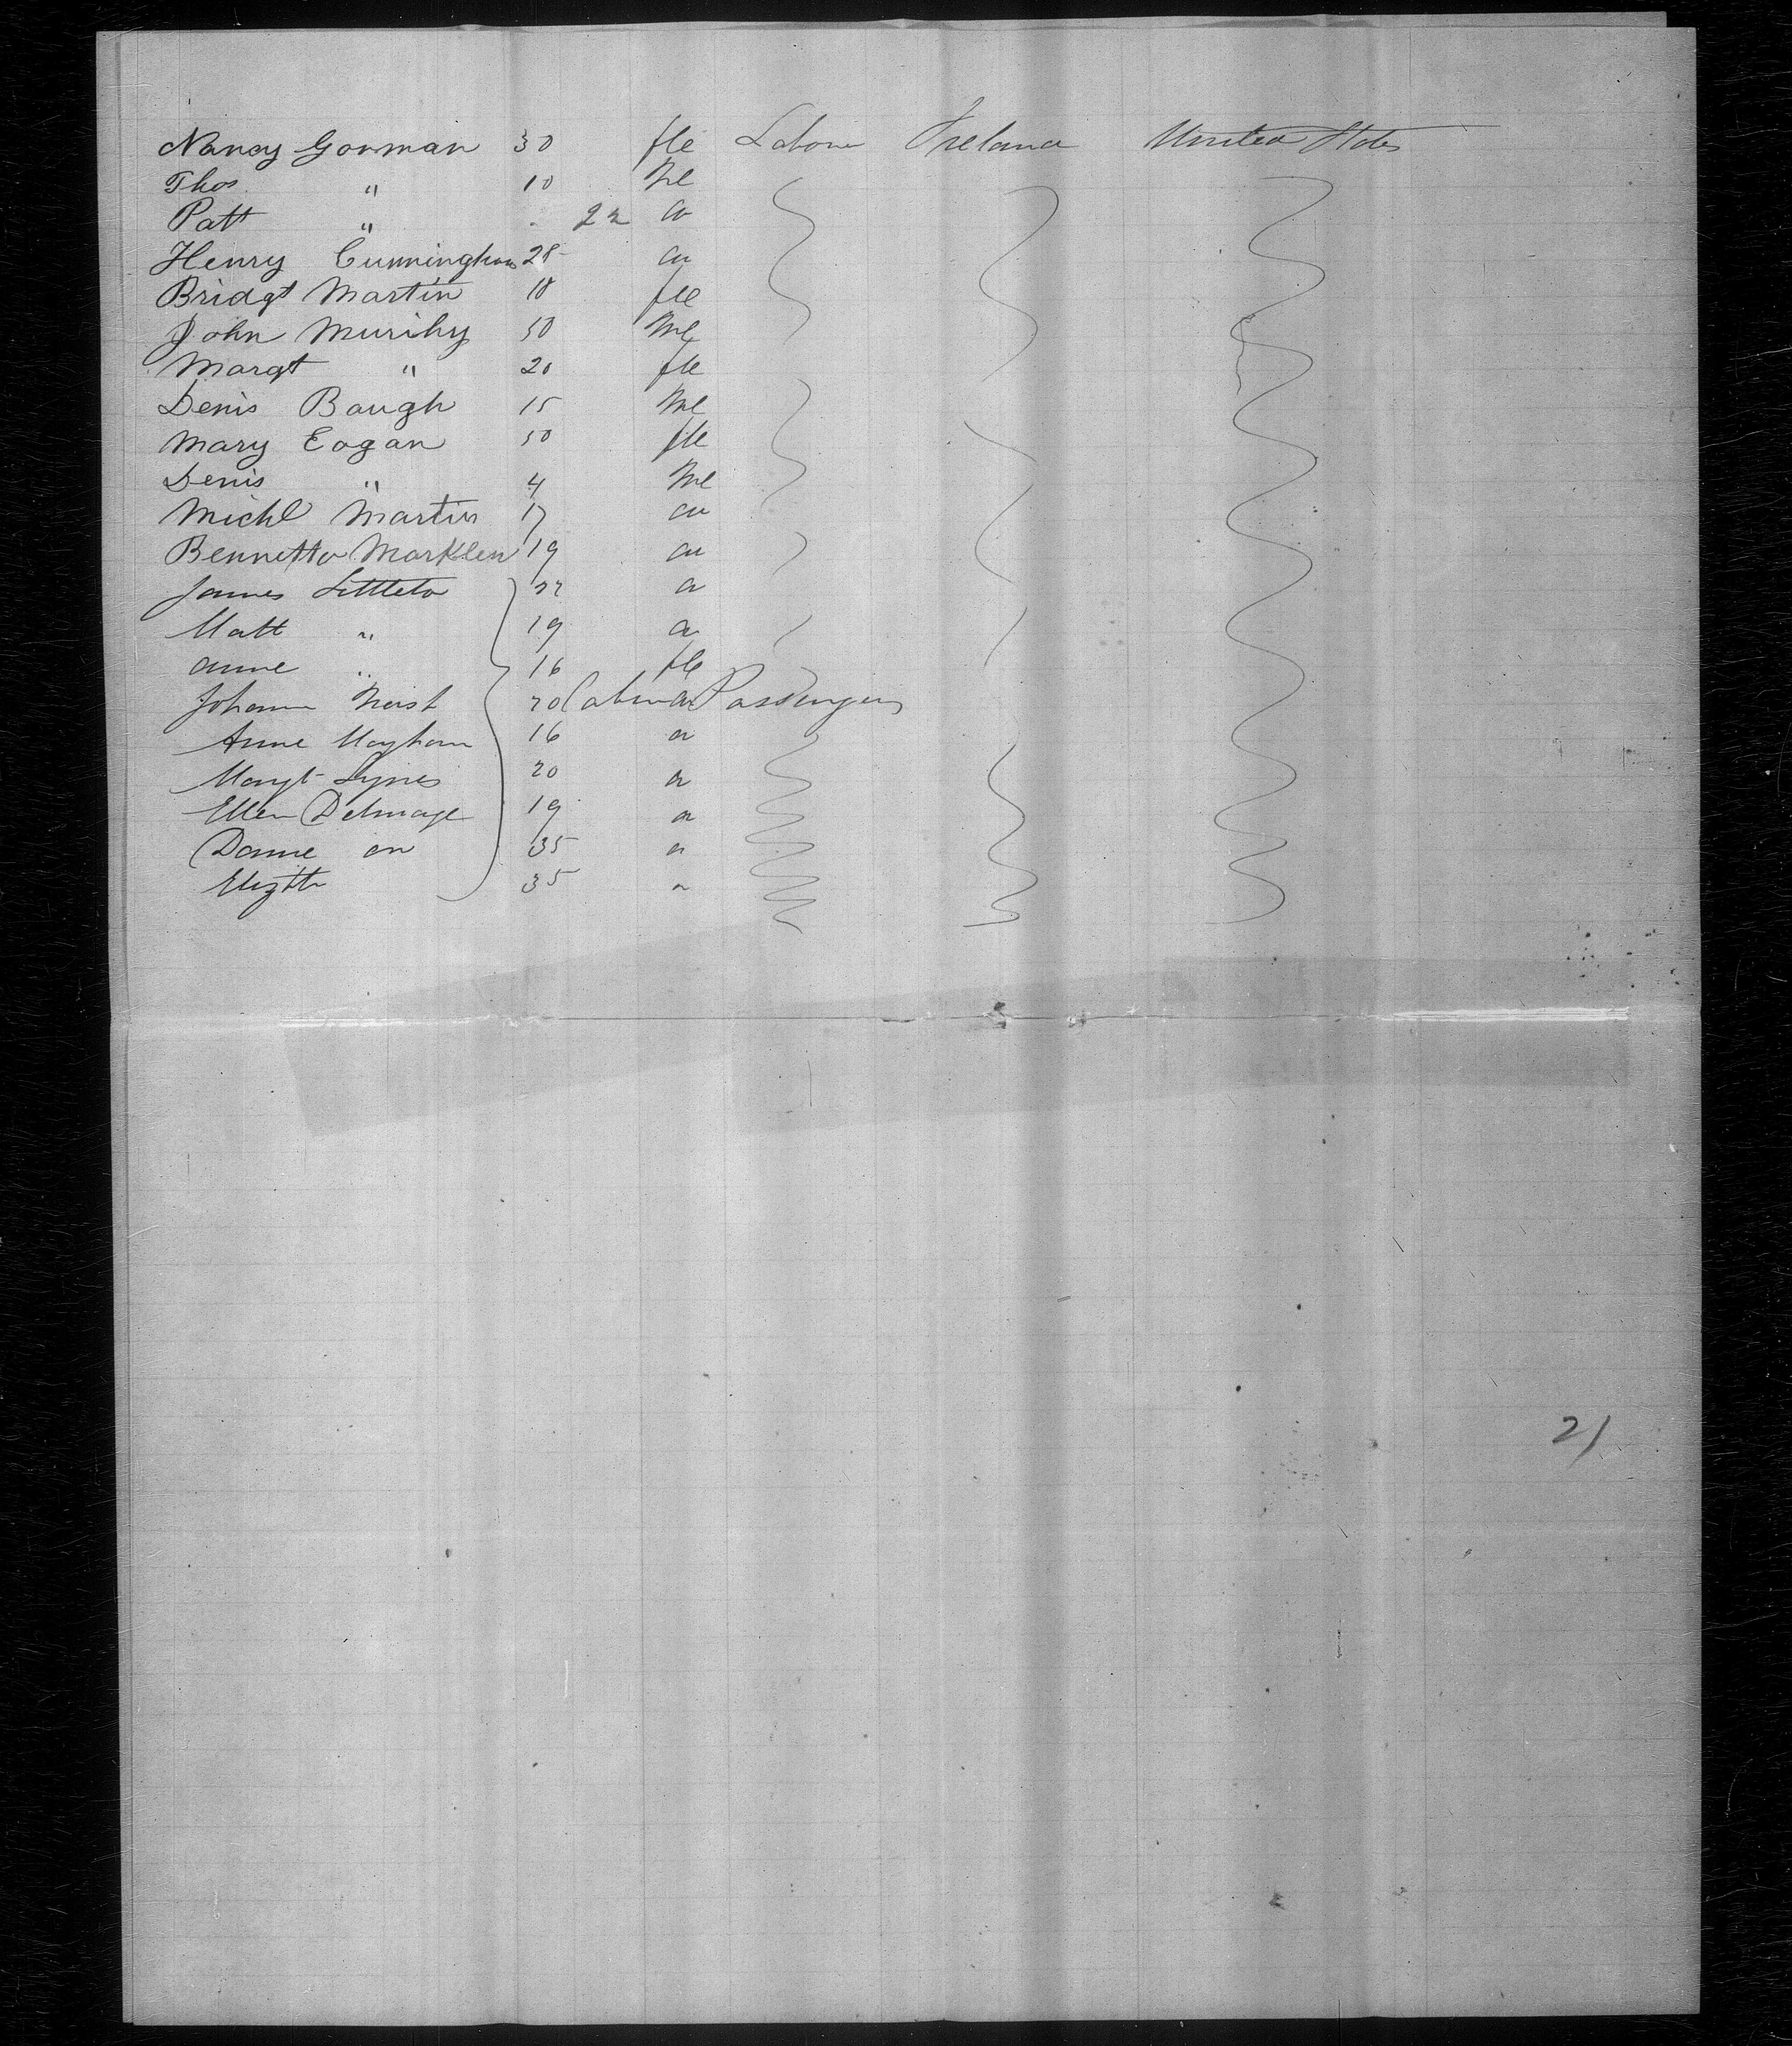 Nancy Gorman 30 fle Labour Ireland United States
Thos. " 10 Me
Patt " 22 a
Henry Cunningham 28 a
Bridgt Martin 18 fle
John Murihy 50 Me
Margt " 20 fle
Denis Baugh 15 Me
Mary Eogan 50 fle
Denis " 4 Me
Michl Martin 17 a
Bennetto Marklen 19 a
James Littleto 22 a
Matt " 19 a
Anne " 16 fle
Johanna 20 Cabin Passengers
Anne Mayham 16 a
Margt Lynes 20 a
Ellen Delmage 19 a
35 a
Elizth 35 a
21